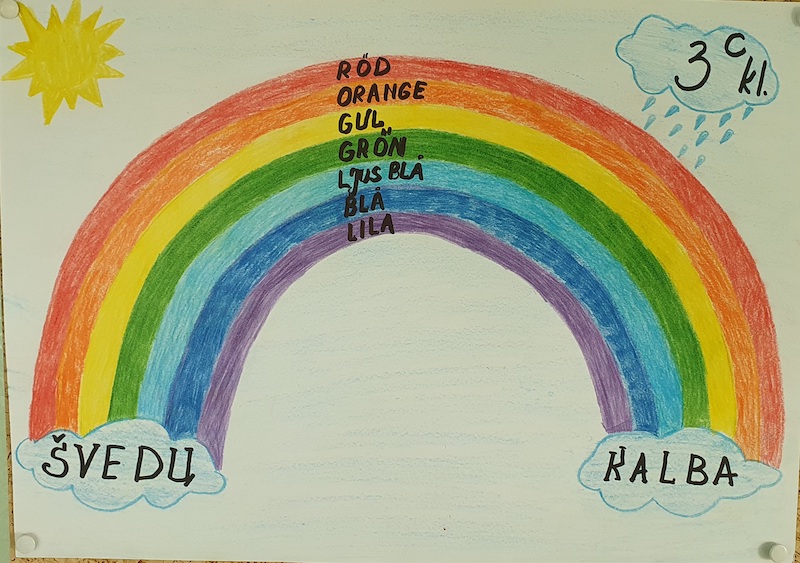 3 C kl.
RÖD
ORANGE
GUL
GRÖN
LJUS BLÅ
BLÅ
LILA
ŠVEDŲ
KALBA